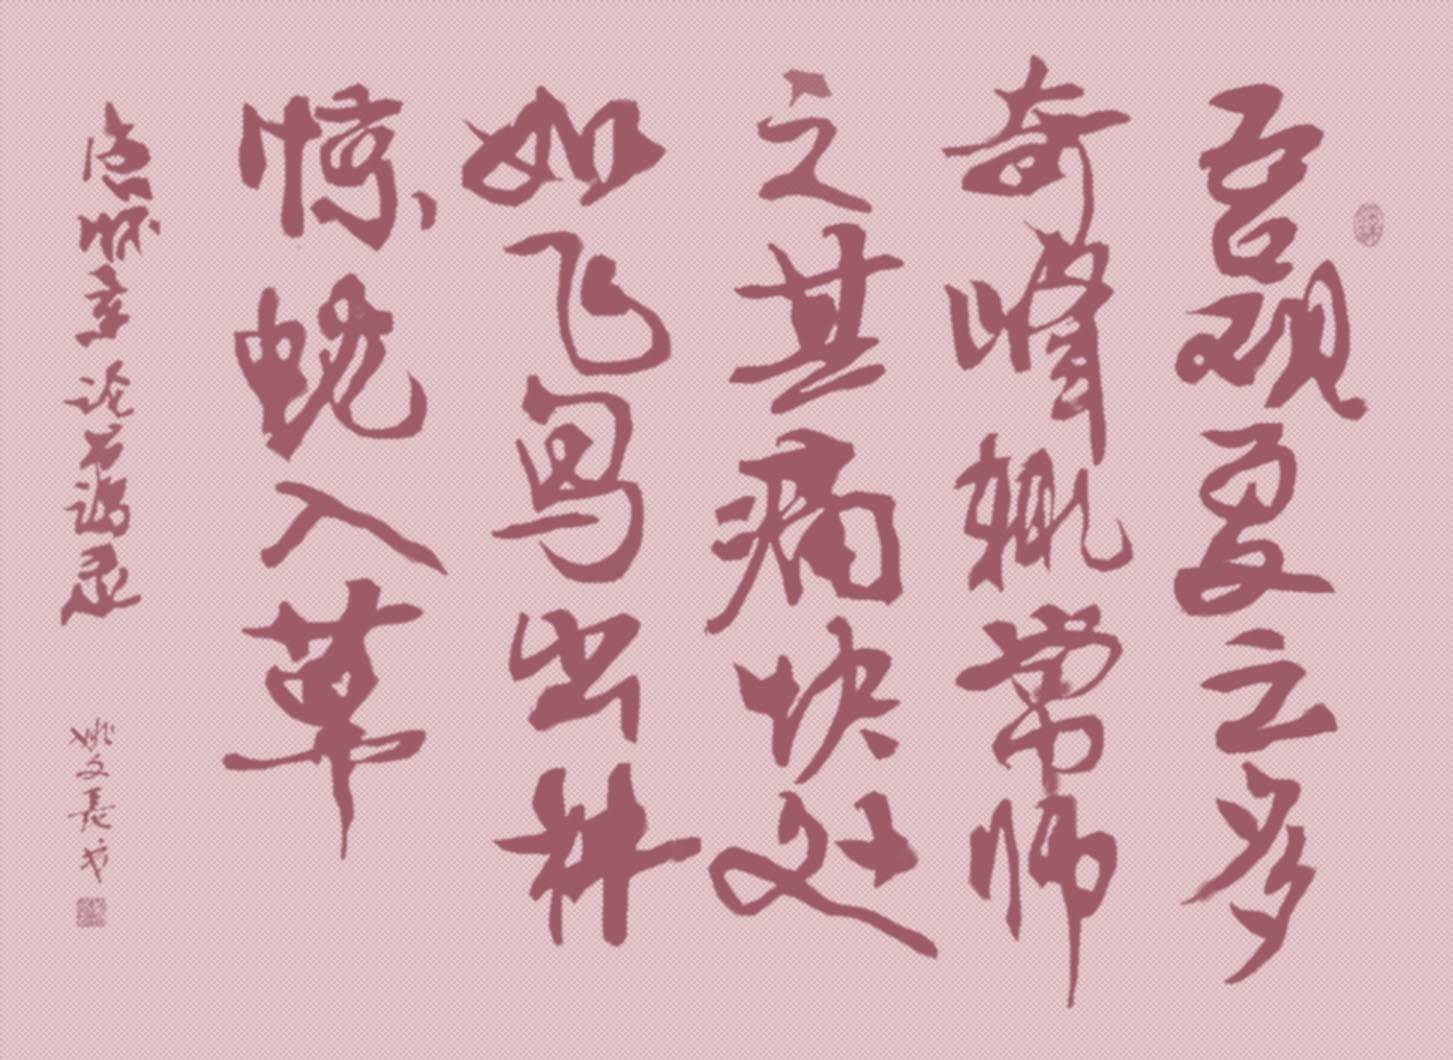 吾观夏云多
奇峰辄常师
之其痛快处
如飞鸟出林
惊蛇入草
唐怀素论书语录
姚文長